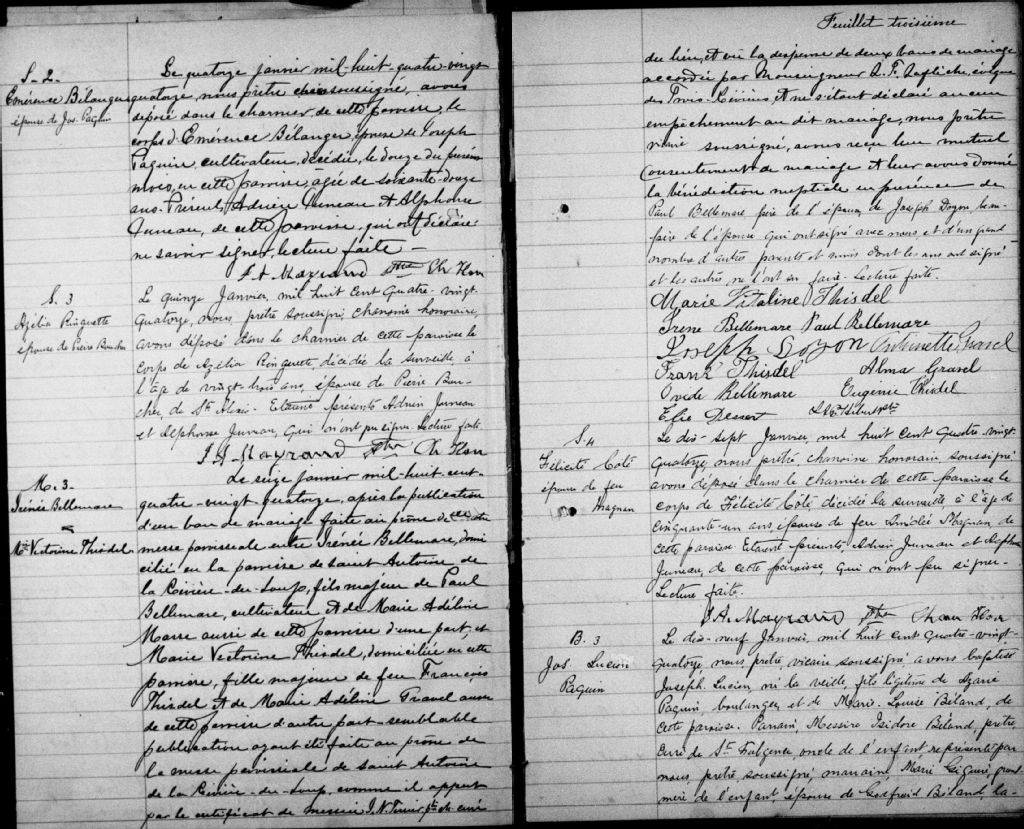 S-2-
Emérence Bélanger
épouse de Jos. Paquin
Le quatorze janvier mil-huit-quatre-vingt
quatorze, nous prêtre soussigné, avons
déposé dans le charnier de cette paroisse, le
corps d'Emérence Bélanger, épouse de Joseph
Paquin cultivateur, décédée, le douze du présent
mois, en cette paroisse, âgée de soixante-douze
ans. Présents, Adrien Juneau et Alphonse
Juneau, de cette paroisse, qui ont déclaré
ne savoir signer, lecture faite -
J. A. Mayrand Ptre Ch Hon
S. 3
Azélia Ringuette
épouse de Pierre Boucher
Le quinze Janvier, mil huit cent quatre-vingt-
quatorze, nous, prêtre soussigné, chanoine honoraire,
avons déposé dans le charnier de cette paroisse le
corps de Azélia Ringuette, décédée la surveille à
l'âge de vingt-trois ans, épouse de Pierre Bou-
cher de St Alexis. Etaient présents Adrien Juneau
et Alphonse Juneau, qui n'ont pu signer. Lecture faite.
J. A. Mayrand Ptre Ch Hon
M. 3-
Irénée Bellemare
&
Mie Victorine Thisdel
Le seize janvier mil-huit-cent-
quatre-vingt quatorze, après la publication
d'un ban de mariage faite au prône de
messe paroissiale entre Irénée Bellemare, domi
cilié en la paroisse de saint Antoine de
la Rivière-du-Loup, fils majeur de Paul
Bellemare, cultivateur et de Marie Adéline
Masse aussi de cette paroisse d'une part, et
Marie Victorine Thisdel, domiciliée en cette
paroisse, fille majeure de feu François
Thisdel et de Marie Adéline Gravel aussi
de cette paroisse d'autre part - semblable
publication ayant été faite au prône de
la messe paroissiale de saint Antoine
de la Rivière-du-Loup, comme il appert
par le certificat de messire J. N. ptre curé
Feuillet troisième
du lieu, et vu la dispense de deux bans de mariage
accordée par Monseigneur L. F. Laflèche, évêque
des Trois-Rivières et ne s'étant déclaré aucun
empêchement au dit mariage, nous prêtre
soussigné, avons reçu leur mutuel
consentement de mariage et leur avons donné
la bénédiction nuptiale en présence de
Paul Bellemare père de l'époux, de Joseph Doyon, beau-
père de l'épouse qui ont signé avec nous et d'un grand
nombre d'autres parents et amis dont les uns ont signé
et les autres ne l'ont su faire. Lecture faite.
Marie Vitaline Thisdel
Irène Bellemare Paul Bellemare
Joseph Doyon Antoinette Gravel
Frank Thisdel Alma Gravel
Ovide Bellemare Eugénie Thisdel
Elie
S. 4
Félicité Côté
épouse de feu
Magnan
Le dix-sept Janvier, mil huit cent quatre-vingt-
quatorze, nous prêtre, chanoine honoraire soussigné
avons déposé dans le charnier de cette paroisse le
corps de Félicité Côté, décédée la surveille, à l'âge de
cinquante-un ans, épouse de feu Amédée Magnan, de
cette paroisse. Etaient présents, Adrien Juneau et Alphonse
Juneau, de cette paroisse, qui n'ont pu signer-
Lecture faite.
J. A. Mayrand Ptre Chan Hon
B. 3
Jos. Lucien
Paquin
Le dix-neuf Janvier, mil huit cent quatre-vingt-
quatorze, nous prêtre, vicaire soussigné avons baptisé
Joseph. Lucien, né la veille, fils légitime de Azarie
Paquin boulanger et de Marie-Louise Béland, de
cette paroisse. Parrain, Messire Isidore Béland, prêtre
curé de St Fulgence, oncle de l'enfant représenté par
nous, prêtre soussigné, marraine, Marie Giguère, grand
mère de l'enfant, épouse de Godfroid Béland, la-